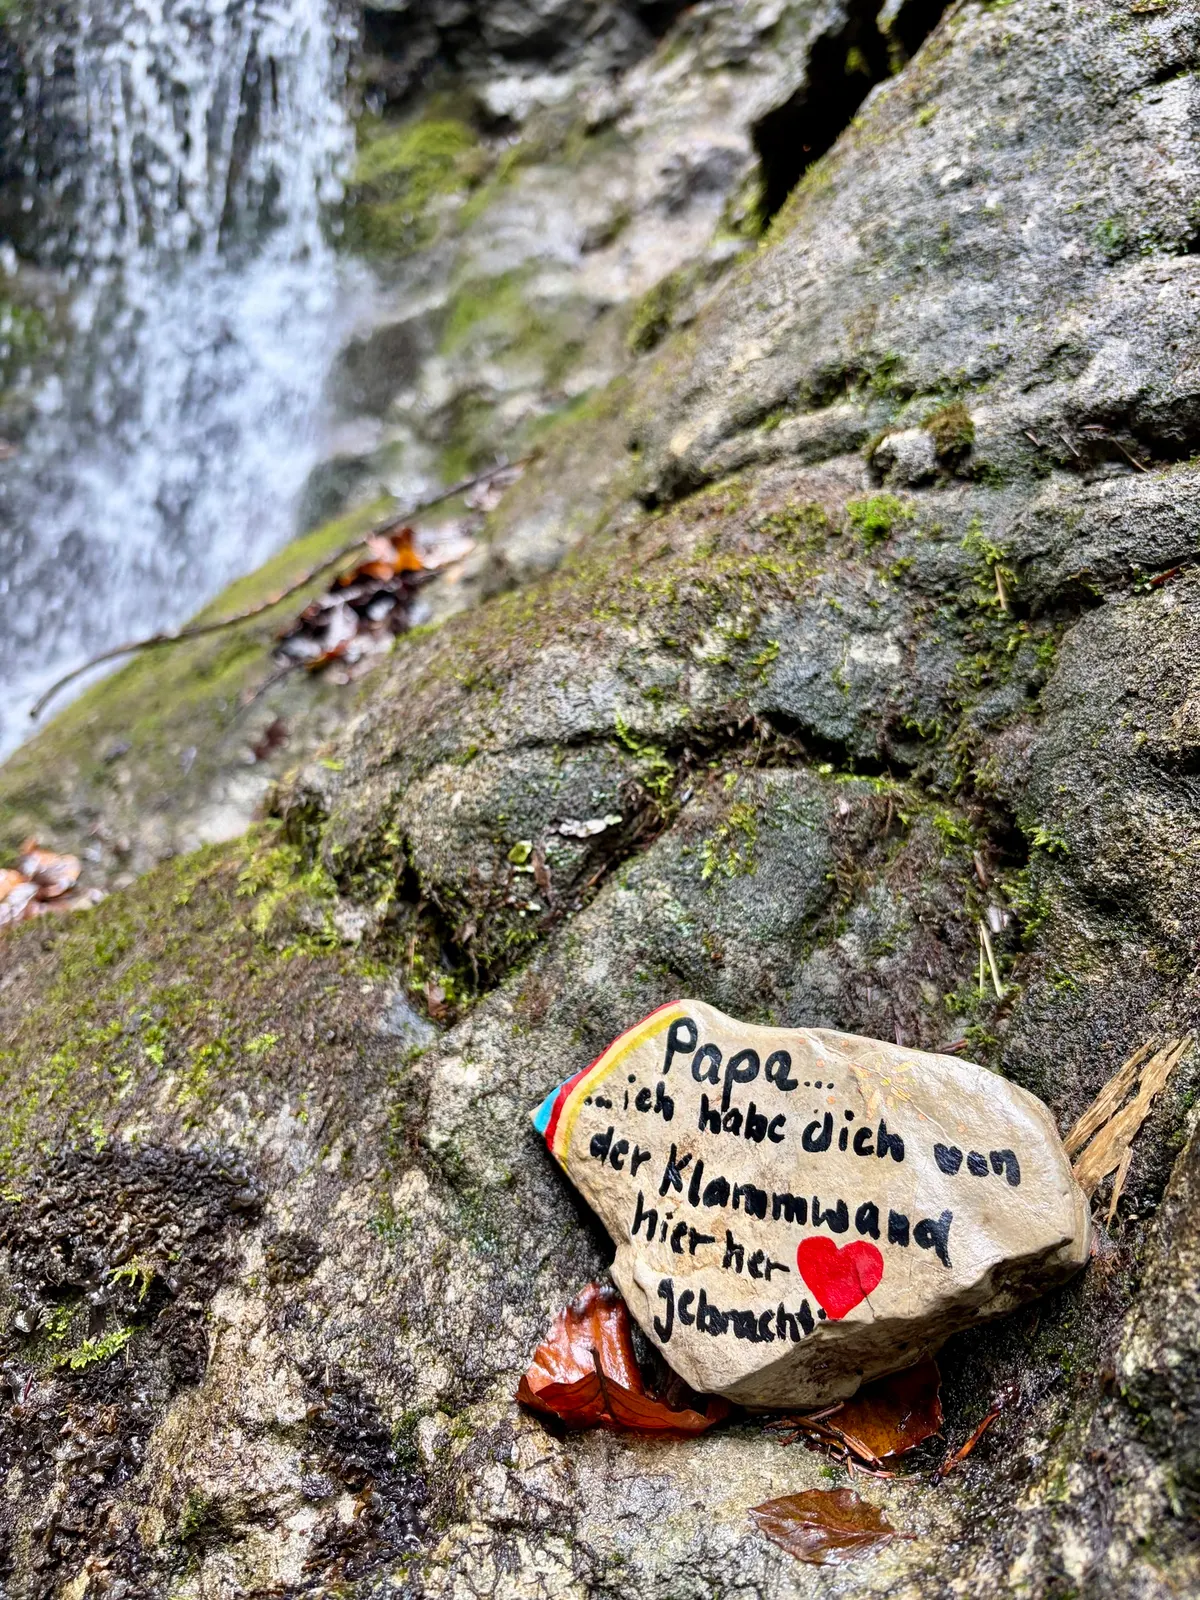 Papa...
...ich habe dich von
der Klammwand
hier her
gebracht!